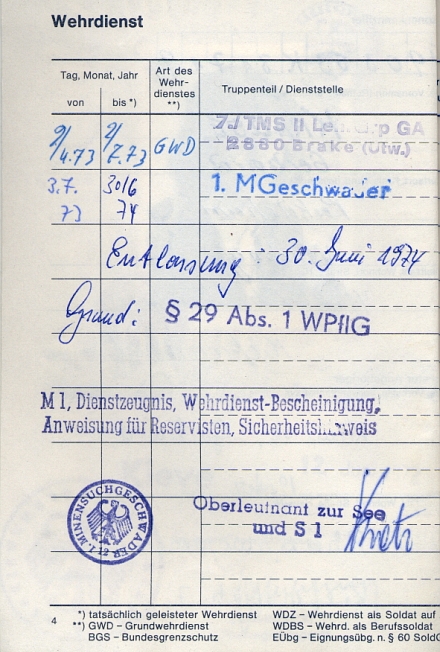 Wehrdienst
Tag, Monat, Jahr
Art des Wehr-dienstes **)
Truppenteil / Dienststelle
von
bis *)
2/4.73 2/7.73 GWD 7./TMS II
2880 Brake (Utw.)
3.7. 73 30/6 74 1. MGeschwader
Entlassung: 30. Juni 1974
Grund: § 29 Abs. 1 WPflG
M 1, Dienstzeugnis, Wehrdienst-Bescheinigung,
Anweisung für Reservisten, Sicherheitshinweis
1. MINENSUCHGESCHWADER
12
Oberleutnant zur See
und S 1
4
*) tatsächlich geleisteter Wehrdienst
**) GWD – Grundwehrdienst
BGS – Bundesgrenzschutz
WDZ – Wehrdienst als Soldat auf
WDBS – Wehrd. als Berufssoldat
EÜbg – Eignungsübg. n. § 60 Sold